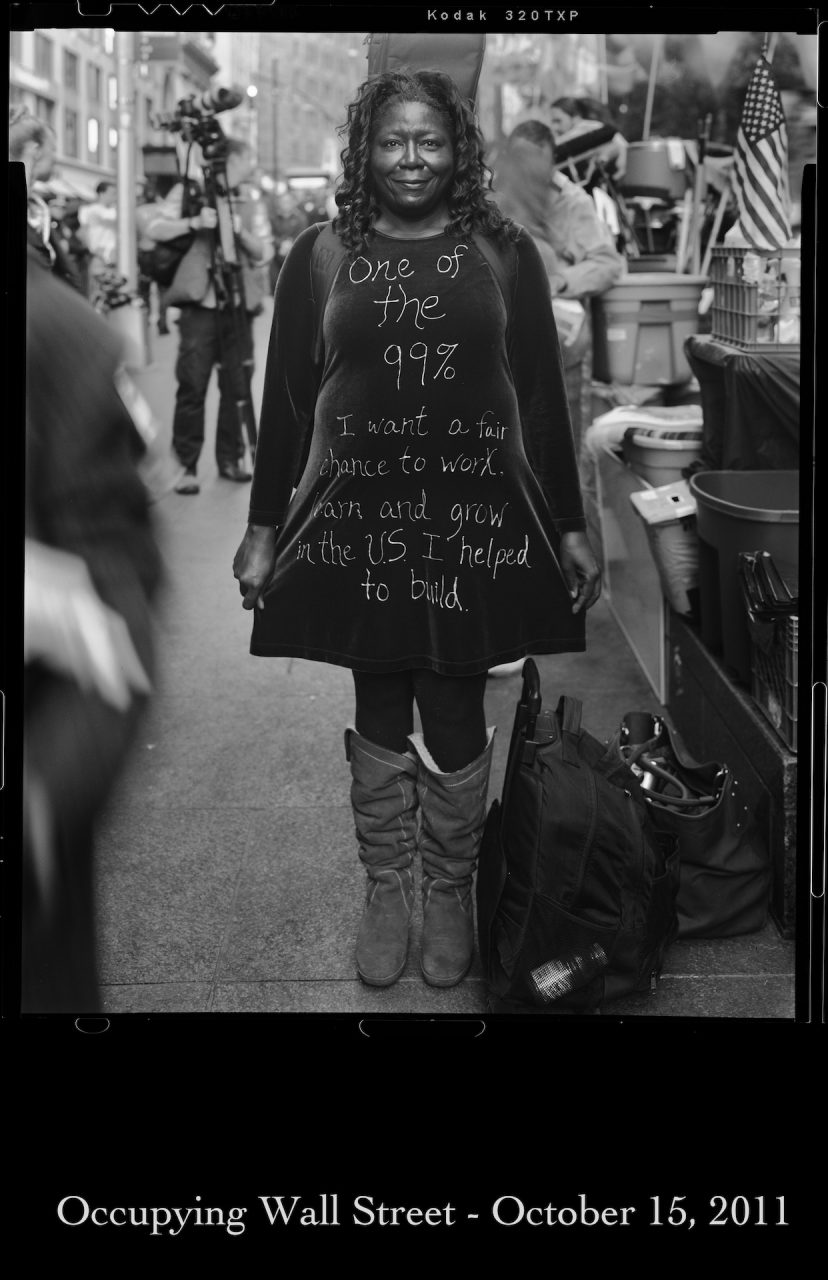 Kodak 320TXP
One of
the
99%
I want a fair
chance to work.
learn and grow
in the U.S. I helped
to build.
Occupying Wall Street - October 15, 2011